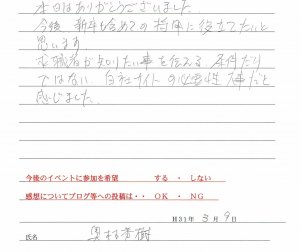 本日はありがとうございました。
今後 新卒も含めての指標に役立てたいと
思います。
求職者が知りたい事を伝える 条件だけ
ではない。自社サイトの必要性 大事だと
感じました。
今後のイベントに参加を希望 する ・ しない
感想についてブログ等への投稿は・・ OK ・ NG
H31年 3月 9日
氏名